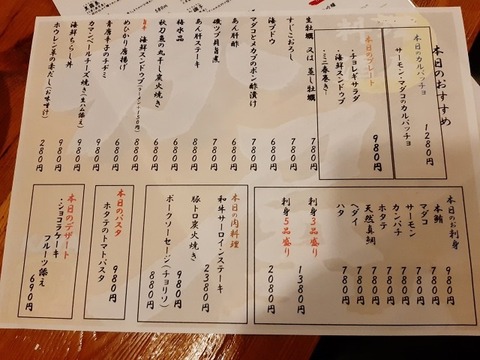 本日のおすすめ
本日のカルパッチョ
サーモン・マダコのカルパッチョ
1280円
本日のプレート
・チョレギサラダ
・海鮮スンドゥブ
・ミニ春巻き
980円
生牡蠣 又は 蒸し牡蠣 780円
すじこおろし 780円
海ブドウ 680円
マダコとメカブのポン酢漬け 780円
あん肝酢 680円
あん肝ステーキ 780円
磯ツブ貝旨煮 680円
海鮮スンドゥブ
秋刀魚の丸干し炭火焼き
めひかり唐揚げ
青唐辛子のチヂミ
カマンベールチーズ焼き(生ハム添え)
海鮮ちらし丼
ホウレン草の赤だし(お味噌汁) 280円
本日のお刺身
本鮪 980円
マダコ 780円
サーモン 780円
カンパチ 780円
ホタテ 780円
天然真鯛 780円
ヘダイ 780円
ハタ 780円
刺身3品盛り 1380円
刺身5品盛り 2080円
本日の肉料理
和牛サーロインステーキ 2380円
豚トロ炭火焼き 980円
ポークソーセージ(チョリソ) 880円
本日のパスタ
ホタテのトマトパスタ
980円
本日のデザート
・ショコラケーキ
フルーツ添え
690円